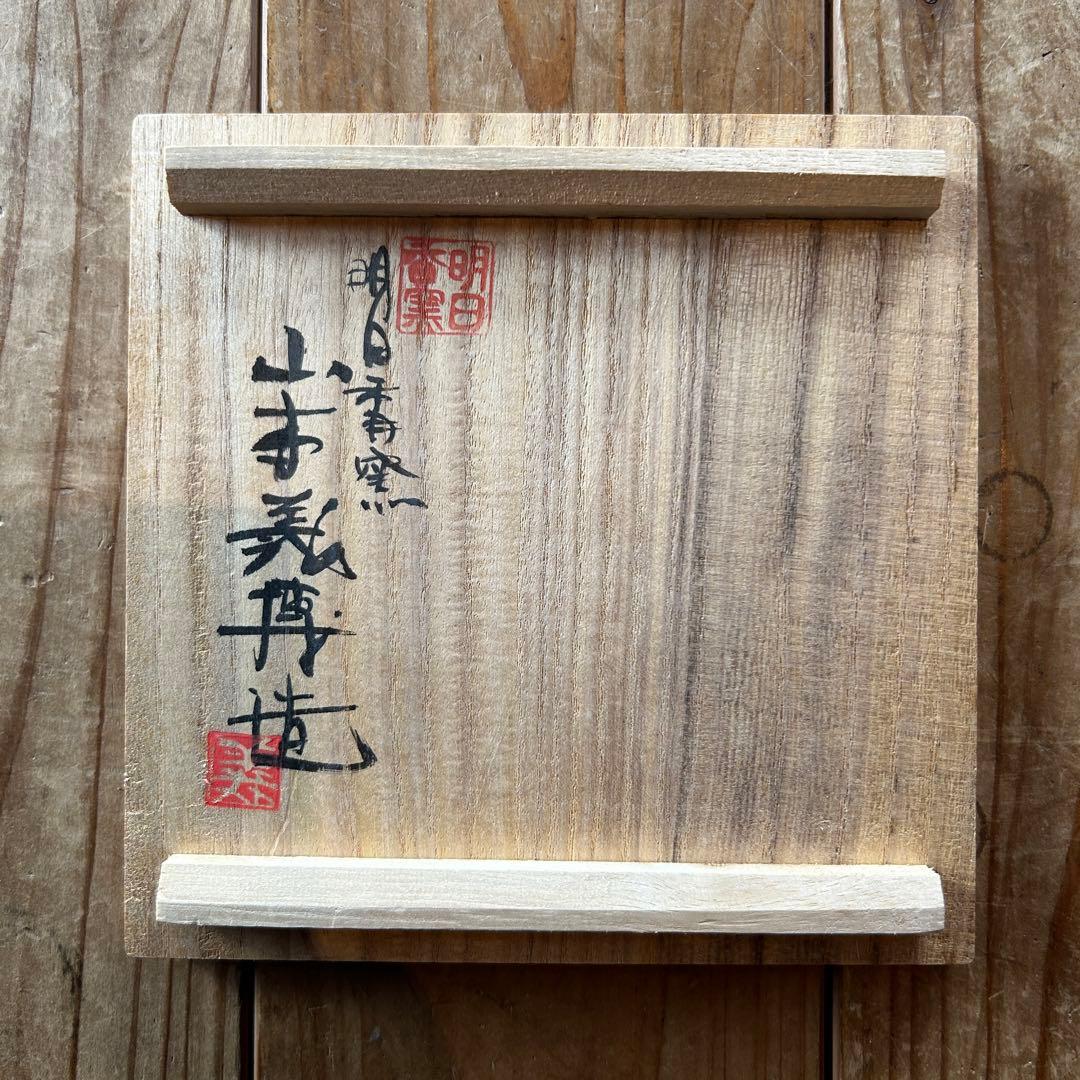 明日香窯
明日香窯
山本義博造